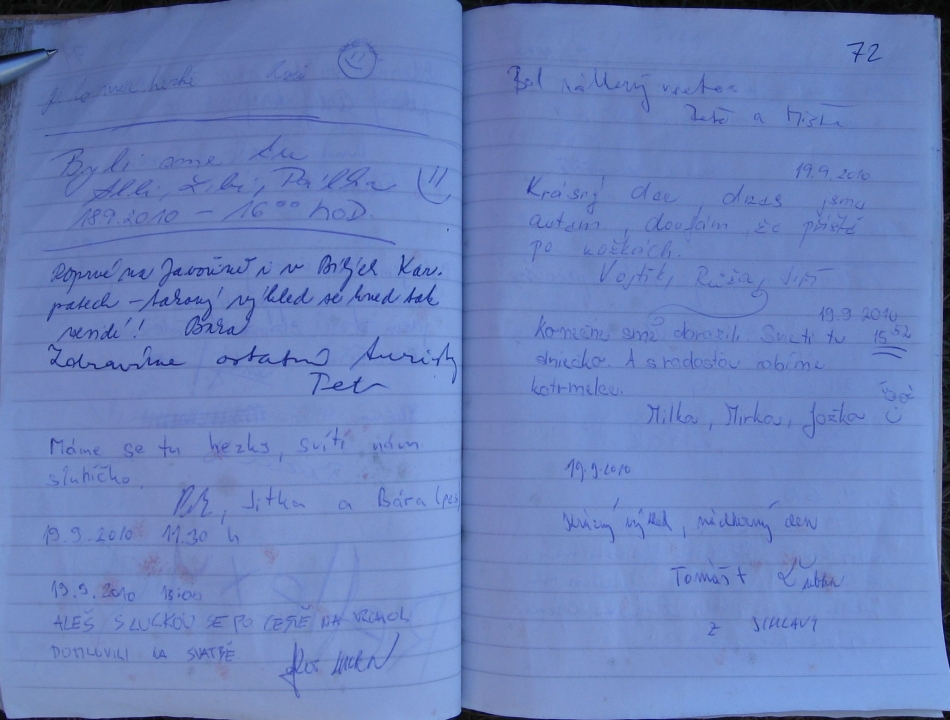 Byli sme tu
18.9.2010 – 16⁰⁰ HOD.
Poprvé na Javořině i v Bílých Kar.
patech – takový výhled se hned tak
nevidí! Bára
Zdravíme ostatní turisty
Máme se tu hezky, svítí nám
sluníčko.
, Jitka a Bára (pes
19.9.2010 11.30 h
19.9.2010 13:00
ALEŠ S LUCKOU SE PO CESTĚ NA VRCHOL
DOMLUVILI NA SVATBĚ
72
Byl nádherný
a Míša
19.9.2010
Krásný den, dnes jsme
autem, doufám že příště
po nožkách.
Vojtík, Růža, Jiří
19.9.2010
Konečne sme dorazili. Svieti tu 15⁵²
slniečko. A s radosťou robíme
kotrmelce.
Milka, Mirka, Jožka
19.9.2010
krásný výhled, nádherný den
Tomáš +
Z JIHLAVY